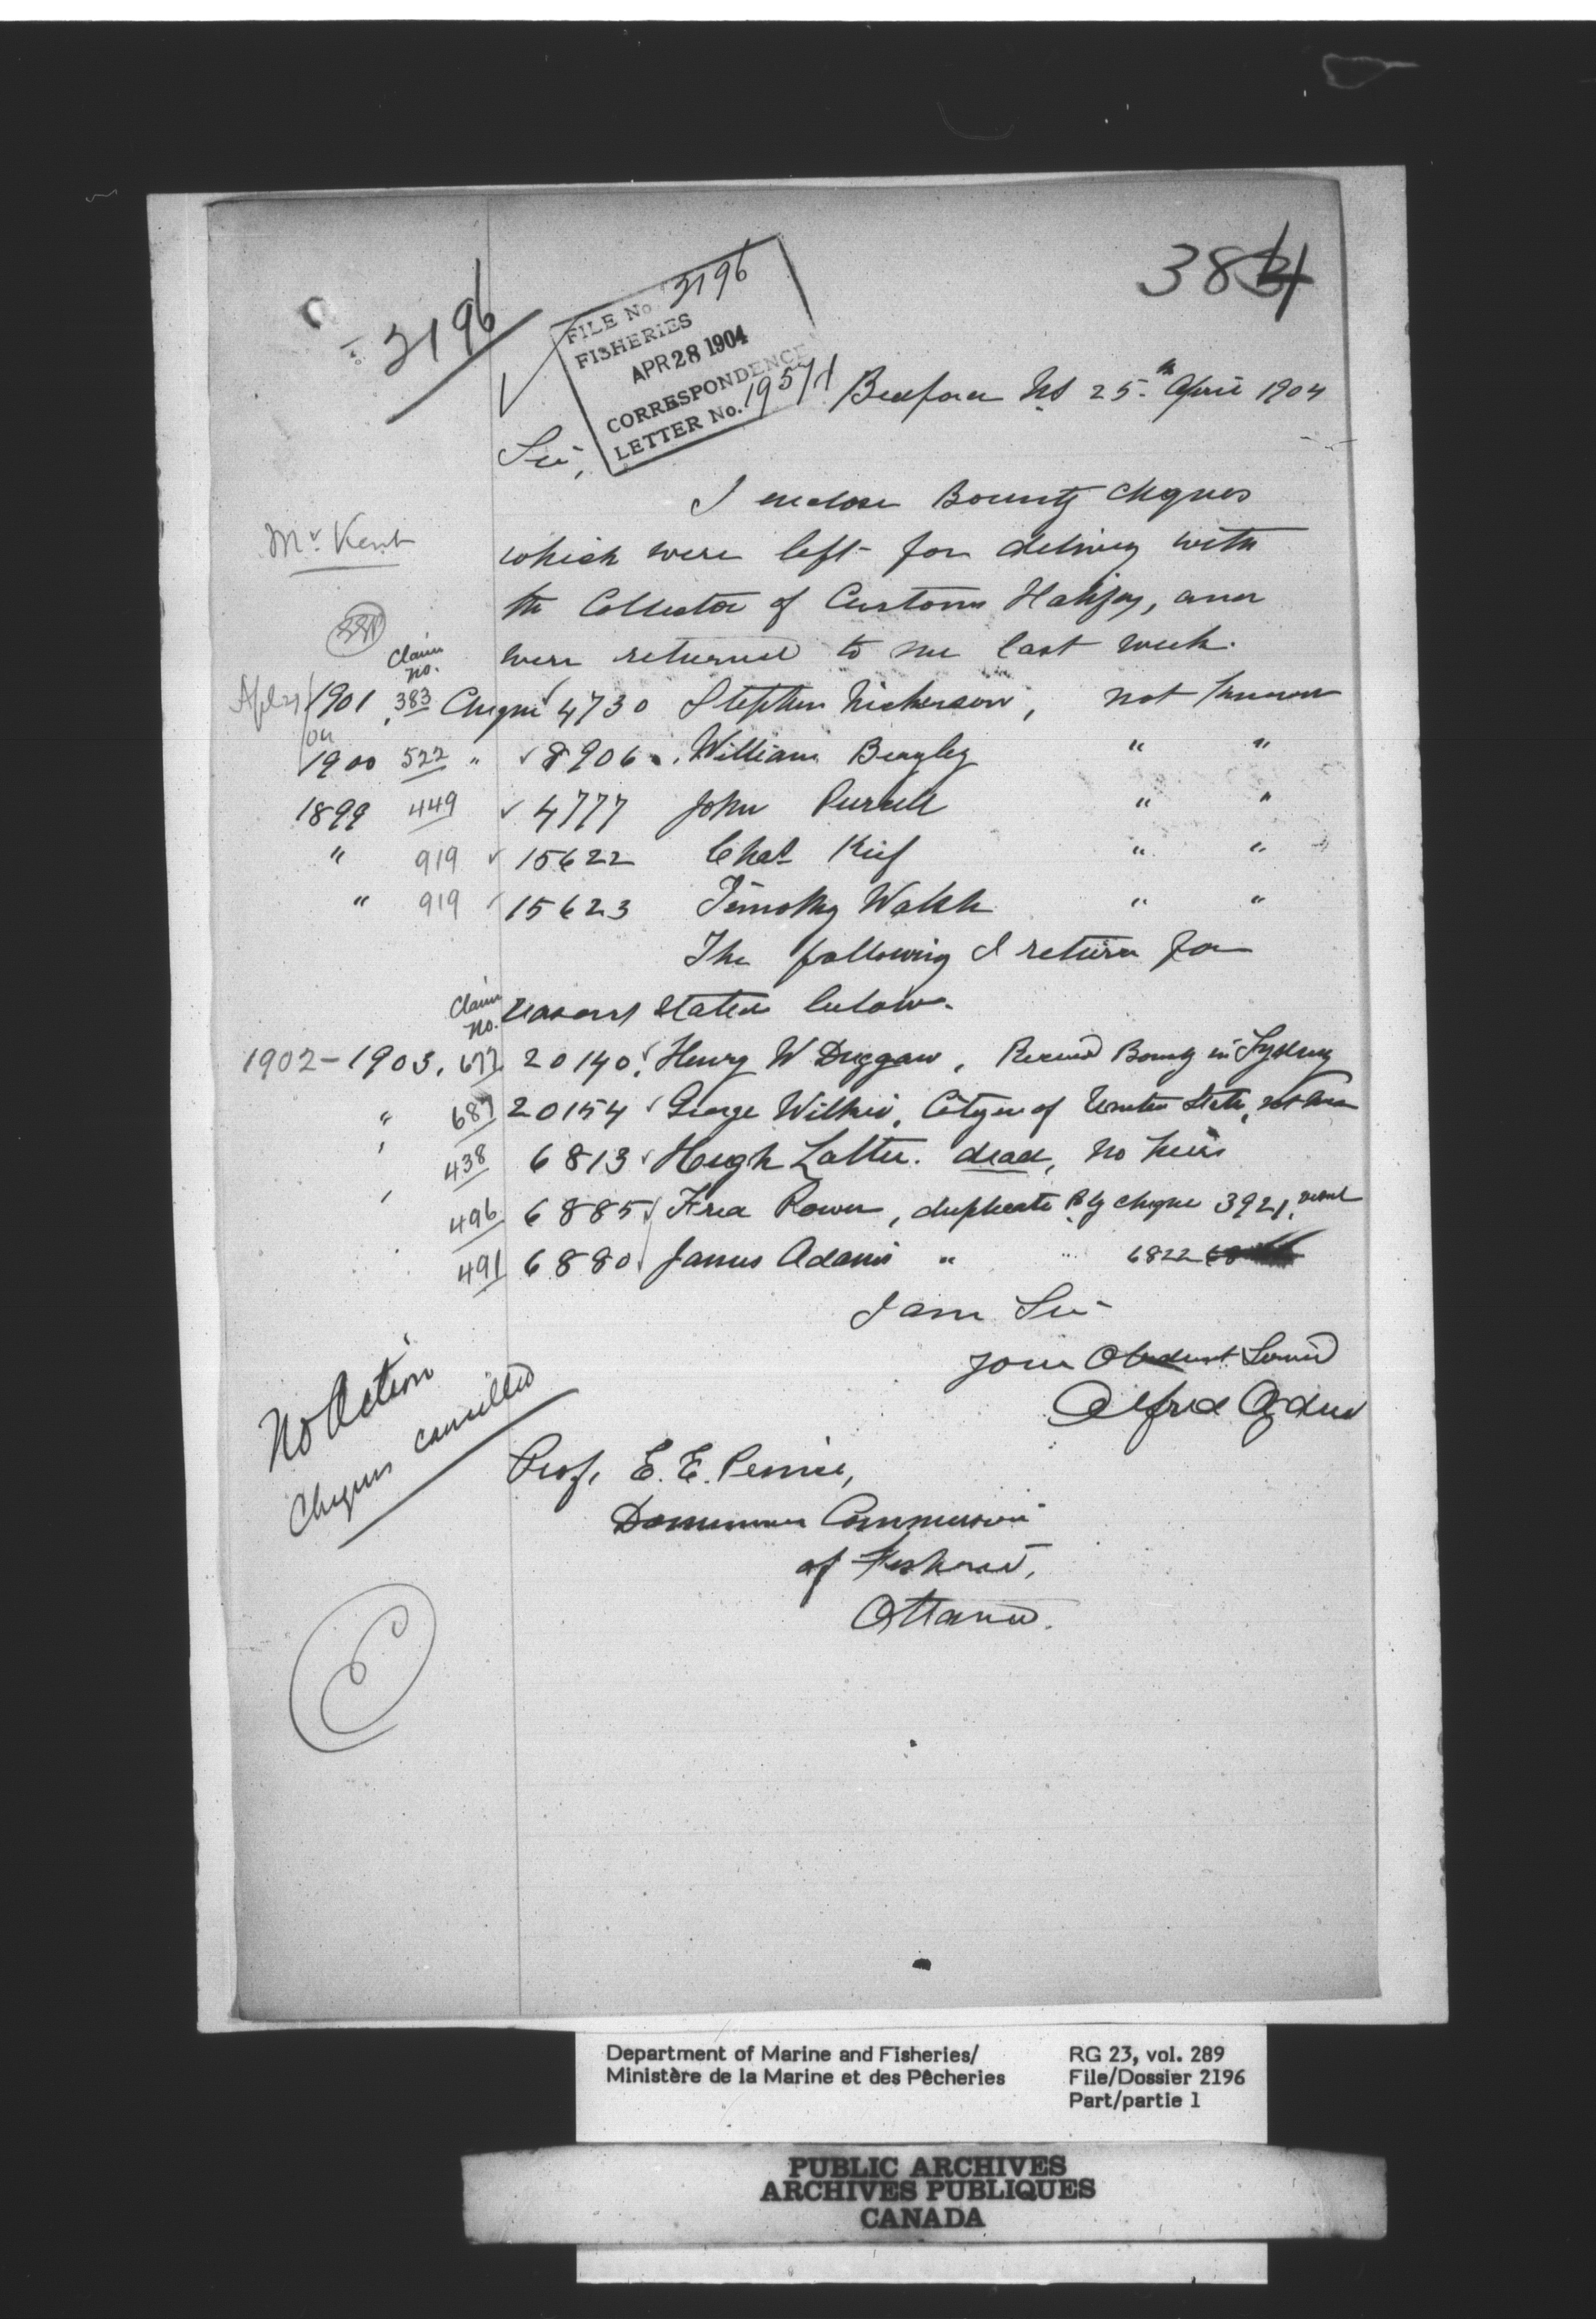 384
3196
FILE No. 3196
FISHERIES
APR 28 1904
CORRESPONDENCE
LETTER No. 19571
Bedford NS 25th April 1904
Sir,
I enclose Bounty cheques
which were left for delivery with
the Collector of Customs Halifax, and
were returned to me last week.
Mr. Kent
Claim
No.
1901 383 Cheque 4730 Stephen Nickerson, not known
1900 522 " 8906 William Beazley " "
1899 449 4777 John Purcell " "
" 919 15622 Chas Kief " "
" 919 15623 Timothy Walsh " "
The following I return for
reasons stated below.
Claim
No.
1902-1903. 677 20140 Henry W Duggan, Received Bounty in Sydney
" 687 20154 George Wilkie, Citizen of United States,
" 438 6813 Hugh Latter. dead, no heirs
" 496 6885 Fred Power, duplicate Bty cheque 3921,
491 6880 James Adams " " 6822
I am Sir
your Obedient Servt
Alfred Ogden
No Action
Cheques cancelled
Prof. E. E. Prince,
Dominion Commissioner
of Fisheries,
Ottawa.
Department of Marine and Fisheries/
Ministère de la Marine et des Pêcheries
RG 23, vol. 289
File/Dossier 2196
Part/partie 1
PUBLIC ARCHIVES
ARCHIVES PUBLIQUES
CANADA